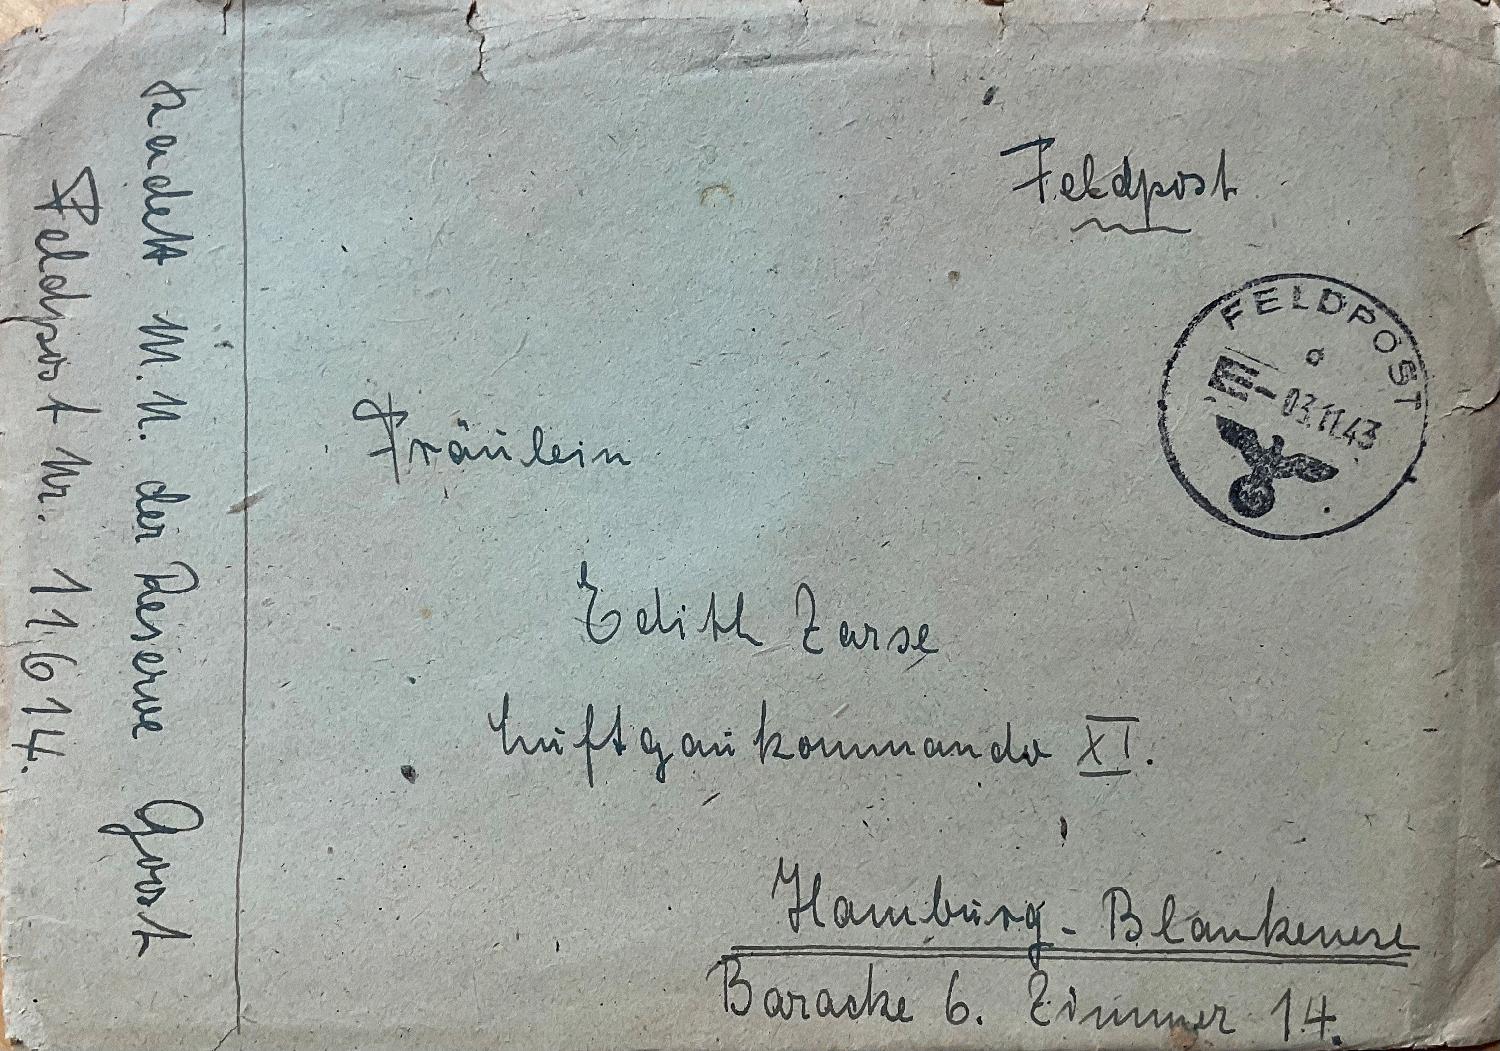 Feldpost
FELDPOST
a
03.11.43
Fräulein
Edith Zarse
Luftgaukommando XI.
Hamburg-Blankenese
Baracke 6. Zimmer 14.
Kadett M.N. der Reserve Goost
Feldpost Nr. 11614.